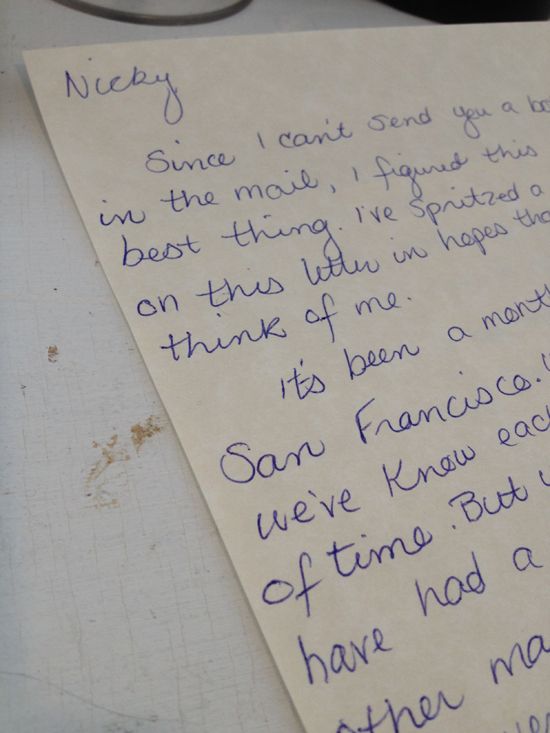 Nicky
Since I can't send you a
in the mail, I figured this
best thing. I've Spritzed a
on this letter in hopes
think of me.
It's been a
San Francisco.
we've Know
of time. But
have had a
other